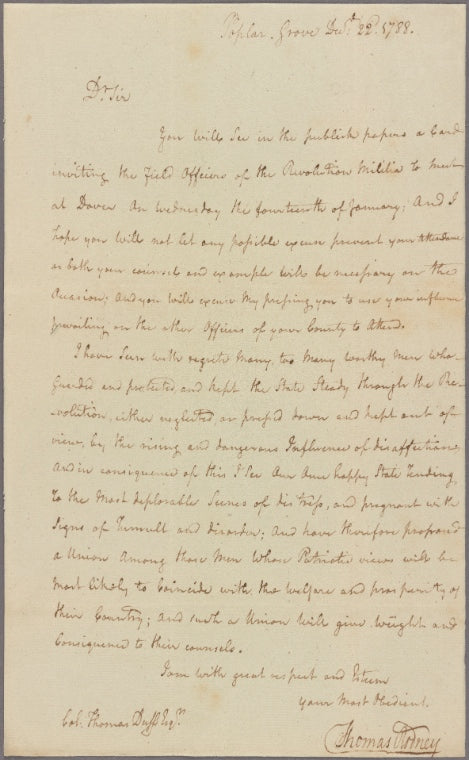 Poplar Grove Decr. 22d. 1788.
Dr. Sir
You will See in the publick papers a Card
inviting the Field Officers of the Revolution Militia to meet
at Dover on Wednesday the fourteenth of January; And I
hope you will not let any possible excuse prevent your attendance
as both your counsel and example will be necessary on the
Occasion; And you will excuse My pressing you to use your influence
prevailing on the other Officers of your County to Attend.
I have Seen with regrets many, too Many worthy Men who
Guarded and protected, and kept the State Steady through the Re-
volution, either neglected, or press'd down and kept out of
view, by the rising and dangerous Influence of disaffection,
And in consequence of this I See Our Once happy State Tending
To the Most deplorable Scenes of distress, and pregnant with
Signs of Tumult and disorder; And have therefore proposed
a Union Among those Men Whose Patriotic views will be
most likely to Coincide with the welfare and prosperity of
their Country; And such a Union will give weight and
Consequence to their counsels.
I am with great respect and Esteem
your Most Obedient.
Col. Thomas Duff Esqr.
Thomas Rodney